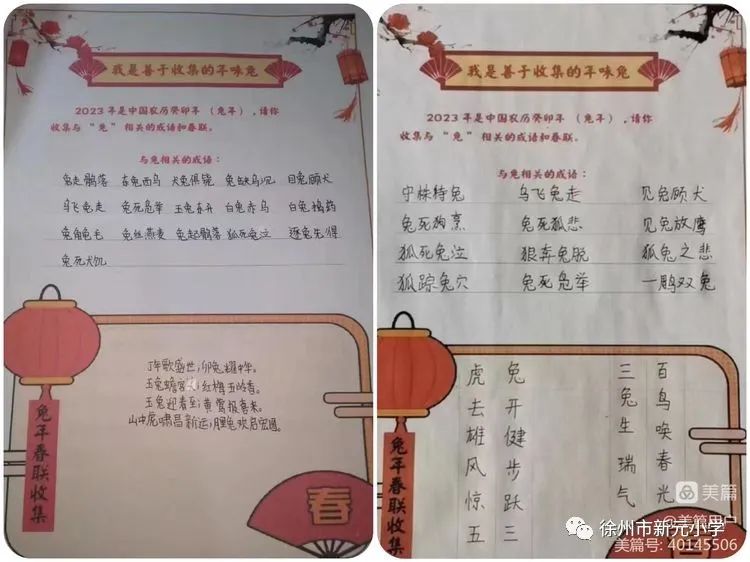 我是善于收集的年味兔
2023年是中国农历癸卯年 （兔年），请你
收集与“兔”相关的成语和春联。
与兔相关的成语：
兔走鹘落 东兔西乌 犬兔俱毙 兔缺乌沉 目兔顾犬
乌飞兔走 兔死凫举 玉兔东升 白兔赤乌 白兔捣药
兔角龟毛 兔丝燕麦 兔起鹘落 狐死兔泣 逐兔先得
兔死犬饥
年歌盛世；卯兔耀中华。
玉兔蟾宫；红梅五岭香。
玉兔迎春至；黄莺报喜来。
山中虎啸昌新运；月里兔欢启宏图。
兔年春联收集
春
我是善于收集的年味兔
2023年是中国农历癸卯年 （兔年），请你
收集与“兔”相关的成语和春联。
与兔相关的成语：
守株待兔 乌飞兔走 见兔顾犬
兔死狗烹 兔死狐悲 见兔放鹰
狐死兔泣 狼奔兔脱 狐兔之悲
狐踪兔穴 兔死凫举 一鹏双兔
百鸟唤春光
三兔生瑞气
兔开健步跃三
虎去雄风惊五
兔年春联收集
美篇
@美篇用户
徐州市新元小学
美篇号: 40145506